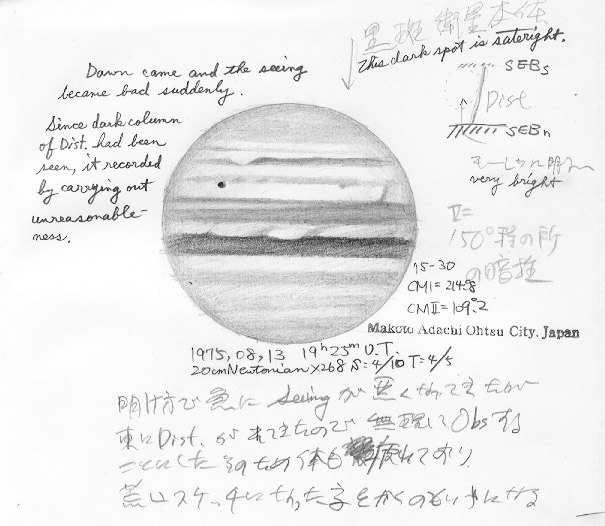 黒斑 衛星本体
This dark spot is sateright.
Dawn came and the seeing
became bad suddenly.
Since dark column
of Dist. had been
seen, it recorded
by carrying out
unreasonable-
ness.
SEBs
Dist
SEBn
very bright
II=
150°程の所
の暗柱
15-30
CMI=214.8
CMII=109.2
Makoto Adachi Ohtsu City. Japan
1975,08,13 19h25m U.T.
20cm Newtonian ×268 S:4/10 T=4/5
明け方で急に Seeingが悪くなってきたが
東にDist.が来てきたので 無理してObsする
ことにした そのため体も 疲れており
荒いスケッチになった 字をかくのもいやになる